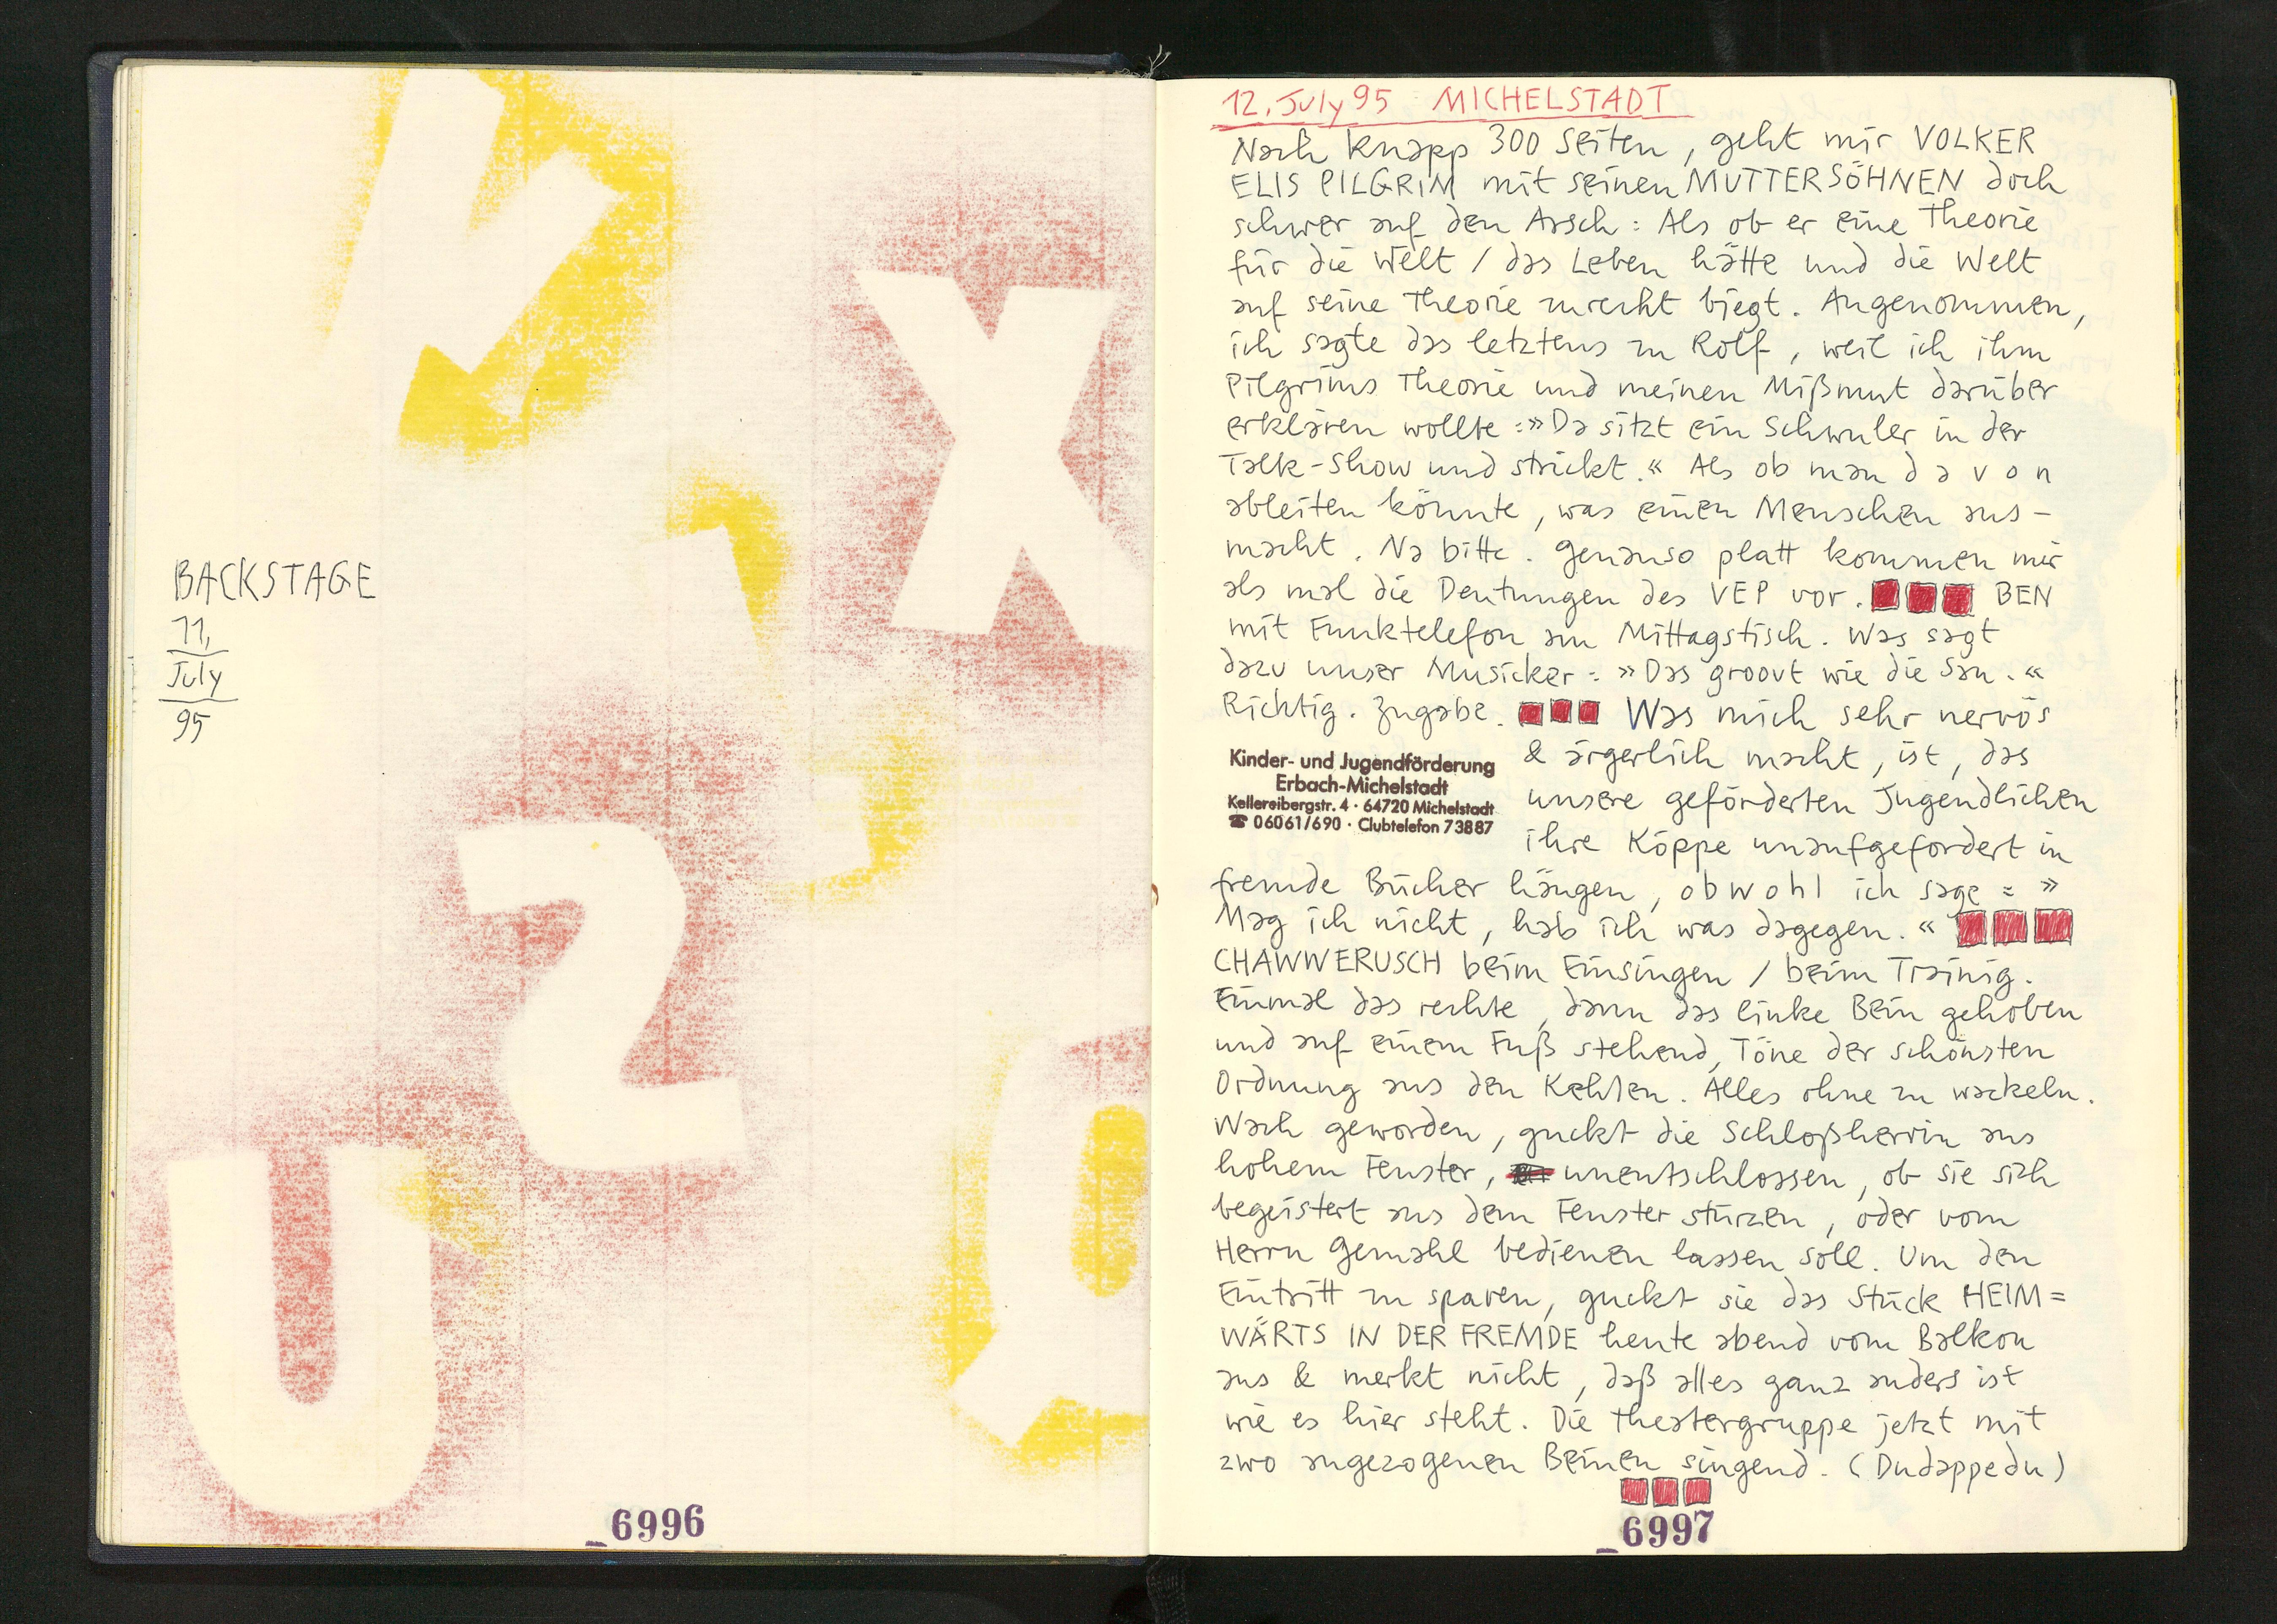 BACKSTAGE
11.
July
95
X
2
U
6996
12. July 95 MICHELSTADT
Nach knapp 300 Seiten, geht mir VOLKER
ELIS PILGRIM mit seinen MUTTERSÖHNEN doch
schwer auf den Arsch: Als ob er eine Theorie
für die Welt / das Leben hätte und die Welt
auf seine Theorie zurecht biegt. Angenommen,
ich sagte das letztens zu Rolf, weil ich ihm
Pilgrims Theorie und meinen Mißmut darüber
erklären wollte: »Da sitzt ein Schwuler in der
Talk-Show und strickt.« Als ob man d a v o n
ableiten könnte, was einen Menschen aus-
macht. Na bitte. Genauso platt kommen mir
als mal die Deutungen des VEP vor. BEN
mit Funktelefon am Mittagstisch. Was sagt
dazu unser Musicker: »Das groovt wie die Sau.«
Richtig. Zugabe. Was mich sehr nervös
& ärgerlich macht, ist, das
unsere geförderten Jugendlichen
ihre Köppe unaufgefordert in
Kinder- und Jugendförderung
Erbach-Michelstadt
Kellereibergstr. 4 · 64720 Michelstadt
☎ 06061/690 · Clubtelefon 73887
fremde Bücher hängen, obwohl ich sage: »
Mag ich nicht, hab ich was dagegen.«
CHAWWERUSCH beim Einsingen / beim Trainig.
Einmal das rechte, dann das linke Bein gehoben
und auf einem Fuß stehend, Töne der schönsten
Ordnung aus den Kehlen. Alles ohne zu wackeln.
Wach geworden, guckt die Schloßherrin aus
hohem Fenster, unentschlossen, ob sie sich
begeistert aus dem Fenster stürzen, oder vom
Herrn Gemahl bedienen lassen soll. Um den
Eintritt zu sparen, guckt sie das Stück HEIM=
WÄRTS IN DER FREMDE heute abend vom Balkon
aus & merkt nicht, daß alles ganz anders ist
wie es hier steht. Die Theatergruppe jetzt mit
zwo angezogenen Beinen singend. (Dudappedu)
6997